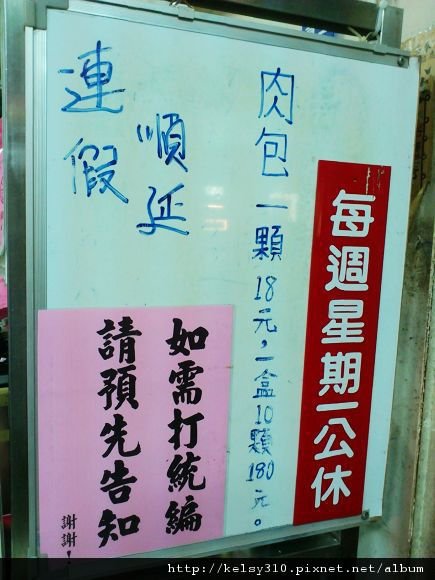 每週星期一公休
肉包一顆18元,一盒10顆180元。
順延
連假
如需打統編
請預先告知
謝謝!
http://kelsy310.pixnet.net/album